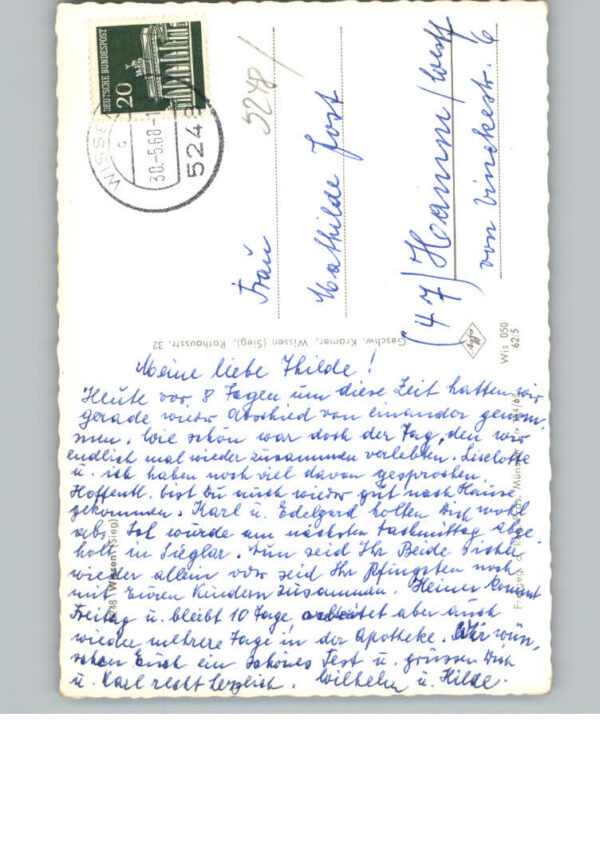 DEUTSCHE BUNDESPOST
20
WISSEN
c
30.-5.68-1
5248
5248/
Frau
Mathilde Jost
(47) Hamm/Westf
von Vinckestr. 6
Geschw. Krämer, Wissen (Sieg), Rathausstr. 32
Agfa
Wis 050
62/5
5248 Wissen (Sieg)
Meine liebe Thilde!
Heute vor 8 Tagen um diese Zeit hatten wir
gerade wieder Abschied von einander genom-
men. Wie schön war doch der Tag, den wir
endlich mal wieder zusammen verlebten. Liselotte
u. ich haben noch viel davon gesprochen.
Hoffentl. bist Du auch wieder gut nach Hause
gekommen. Karl u. Edelgard holten Dich wohl
ab. Ich wurde am nächsten Nachmittag abge-
holt in Sieglar. Nun seid Ihr Beide sicher
wieder allein oder seid Ihr Pfingsten noch
mit Euren Kindern zusammen. Heiner kommt
Freitag u. bleibt 10 Tage, arbeitet aber auch
wieder mehrere Tage in der Apotheke. Wir wün-
schen Euch ein schönes Fest u. grüssen Dich
u. Karl recht herzlich. Wilhelm u. Hilde.